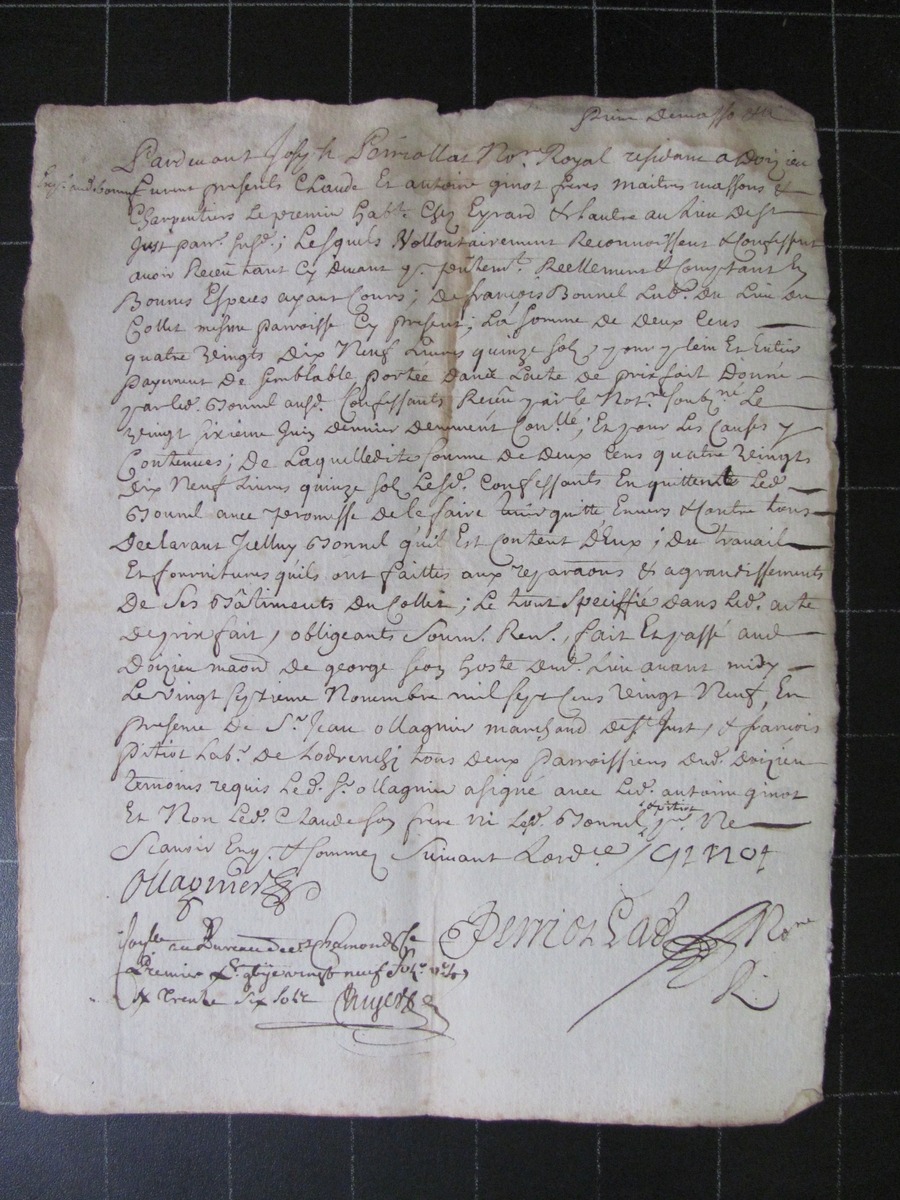 Pardevant Joseph Perriollat No.re Royal residant a Doizieu
furent presents Claude Et antoine ginot freres maitres massons &
Charpentiers Le premier habt. Chez Eyrard & Lautre au lieu de st
Just parr. susd.; Lesquels Vollontairement Reconnoissent & Confessent
avoir Receu tant Cy devant q. presentemt. Reellement & Comptant En
Bonnes Especes ayant Cours; de françois Bonnel Lab. du Lieu du
Collet mesme parroisse Cy present; La somme de deux Cens
quatre vingts dix Neuf Livres quinze sol, pour plein Et Entier
payement de semblable portée dans Lacte de prix fait donné
par led. Bonnel ausd. Confessants Receu par le Not.re soubz.né Le
vingt sixieme Juin dernier deument Con.llé; Et pour Les Causes y
Contenues; De Laquelledite somme de deux Cens quatre vingts
dix Neuf Livres quinze sol Lesd. Confessants En quittent Led.
Bonnel avec promesse de le faire tenir quitte Envers & Contre tous
Declarant Jcelluy Bonnel quil Est Content d'Eux; du travail
Et fournitures quils ont faittes aux reparaons & agrandissements
De ses Bâtiments du Collet; Le tout speciffie dans Led. acte
de prix fait, obligeants soum. Ren., fait Et passé aud
Doizieu maon de george hoste dud. Lieu avant midy
Le vingt septieme Novembre mil sept Cens vingt Neuf, En
presence de Sr. Jean ollagnier marchand de st Just, & francois
pitiot Labr. de tous deux Parroissiens dud. doizieu
temoins requis Led. Sr. ollagnier a signé avec Led. antoine ginot
Et Non Led. Claude son frere ni Led. Bonnel & pitiot pour Ne
Scavoir Enq. & sommez suivant Lord.ce / ginot
Ollagnier
au Bureau de st Chamond Le
Premier xbre vingt neuf
trente six sols
Perriollat No.re
R.